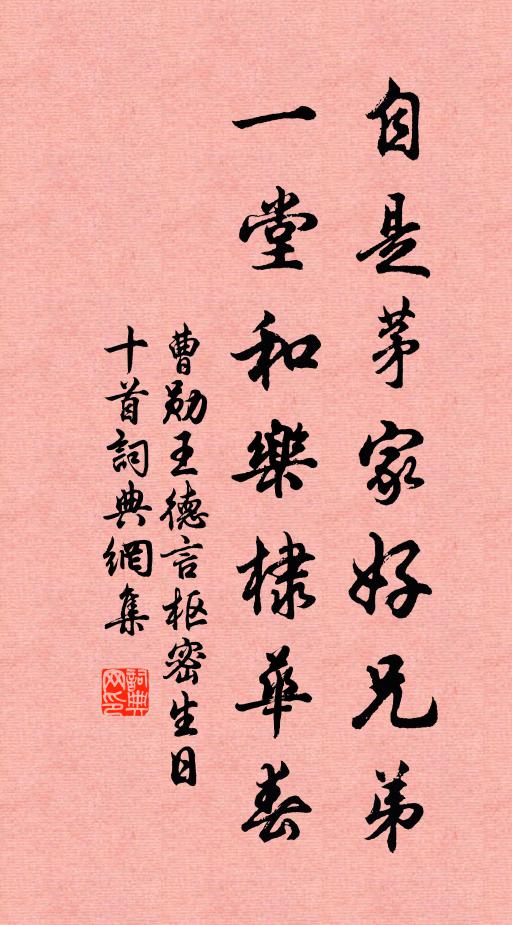 自是茅家好兄弟
一堂和樂棣華春
曹勛王德言樞密生日
十首詞典網集
詞典
网印